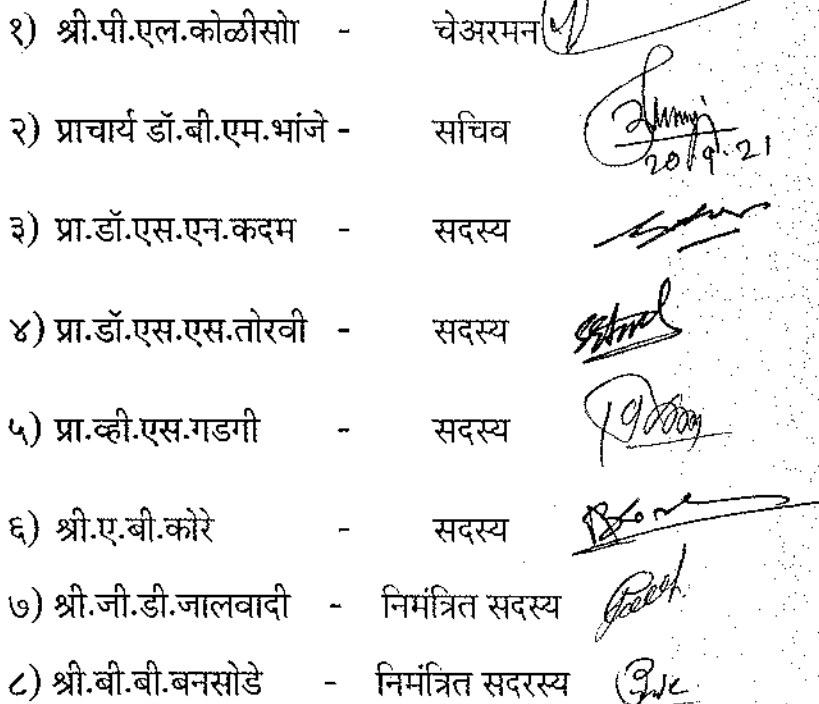 १) श्री.पी.एल.कोळीसाो - चेअरमन
२) प्राचार्य डॉ.बी.एम.भांजे - सचिव
20/9.21
३) प्रा.डॉ.एस.एन.कदम - सदस्य
४) प्रा.डॉ.एस.एस.तोरवी - सदस्य
५) प्रा.व्ही.एस.गडगी - सदस्य
६) श्री.ए.बी.कोरे - सदस्य
७) श्री.जी.डी.जालवादी - निमंत्रित सदस्य
८) श्री.बी.बी.बनसोडे - निमंत्रित सदरस्य